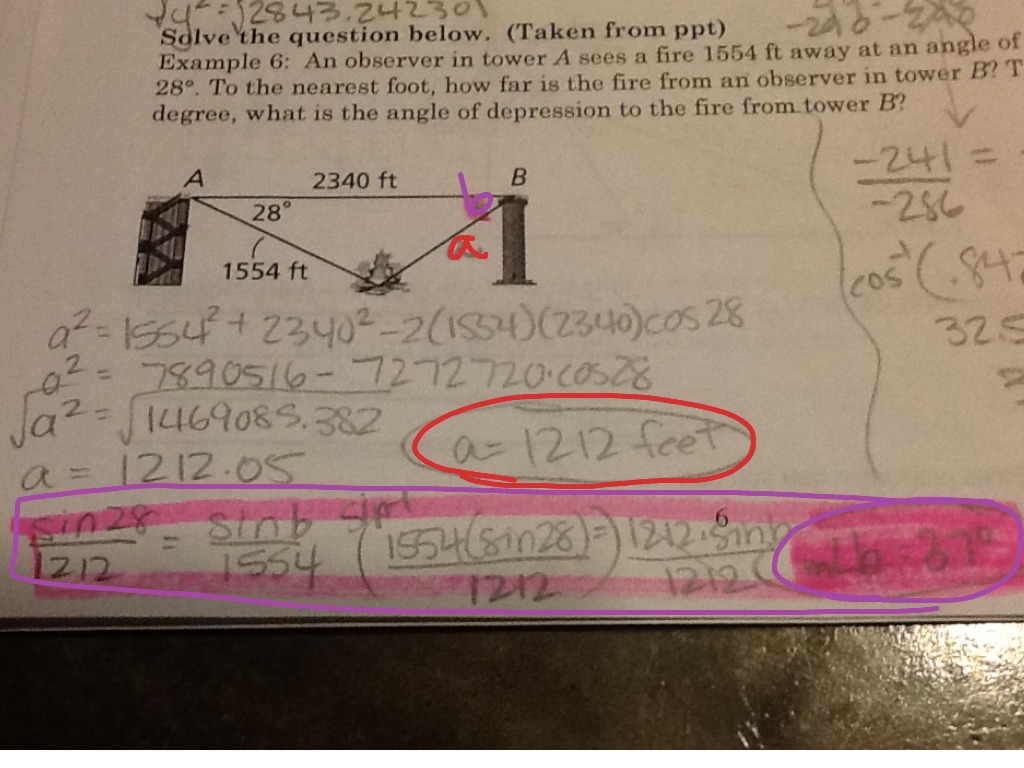 √y² = √2843.242301
Solve the question below. (Taken from ppt)
Example 6: An observer in tower A sees a fire 1554 ft away at an angle of
28°. To the nearest foot, how far is the fire from an observer in tower B? T
degree, what is the angle of depression to the fire from tower B?
-241 =
-286
A 2340 ft b B
28°
a
1554 ft
cos⁻¹(.842
32.5
a² = 1554² + 2340² - 2(1554)(2340)cos28
a² = 7890516 - 7272720·cos28
√a² = √1469085.382
a = 1212 feet
a = 1212.05
sin28 = sinb (1554(sin28)=) 1212·sinb
1212 1554 1212 1212
6
m∠b = 37°